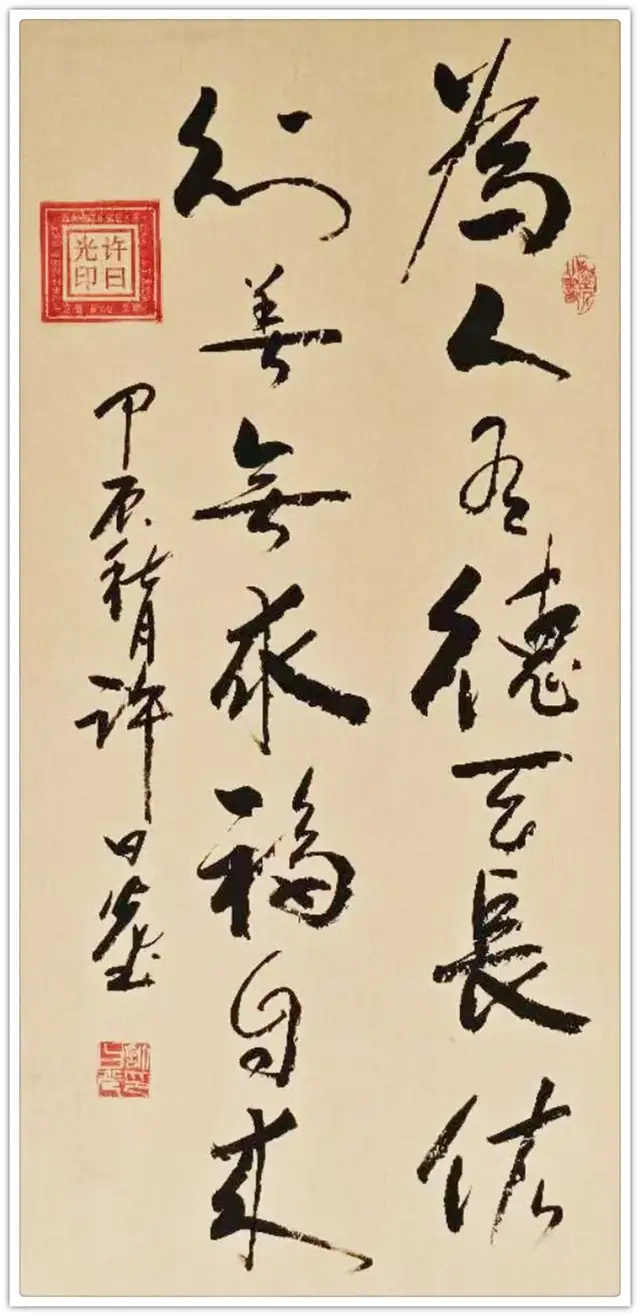 為人有德天長佑
行善無求福自來
甲辰秋月許日光
许日光印